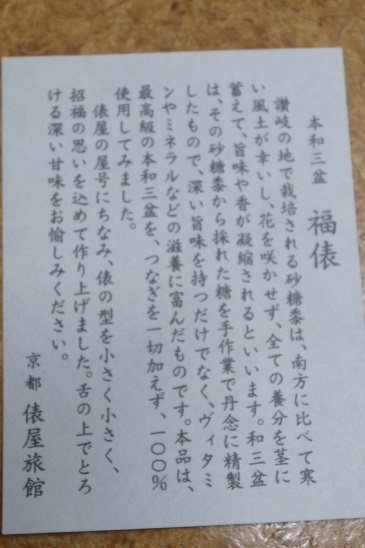 本和三盆 福俵
讃岐の地で栽培される砂糖黍は、南方に比べて寒
い風土が幸いし、花を咲かせず、全ての養分を茎に
蓄えて、旨味や香が凝縮されるといいます。和三盆
は、その砂糖黍から採れた糖を手作業で丹念に精製
したもので、深い旨味を持つだけでなく、ヴィタミ
ンやミネラルなどの滋養に富んだものです。本品は、
最高級の本和三盆を、つなぎを一切加えず、一〇〇%
使用してみました。
俵屋の屋号にちなみ、俵の型を小さく小さく、
招福の思いを込めて作り上げました。舌の上でとろ
ける深い甘味をお愉しみください。
京都 俵屋旅館